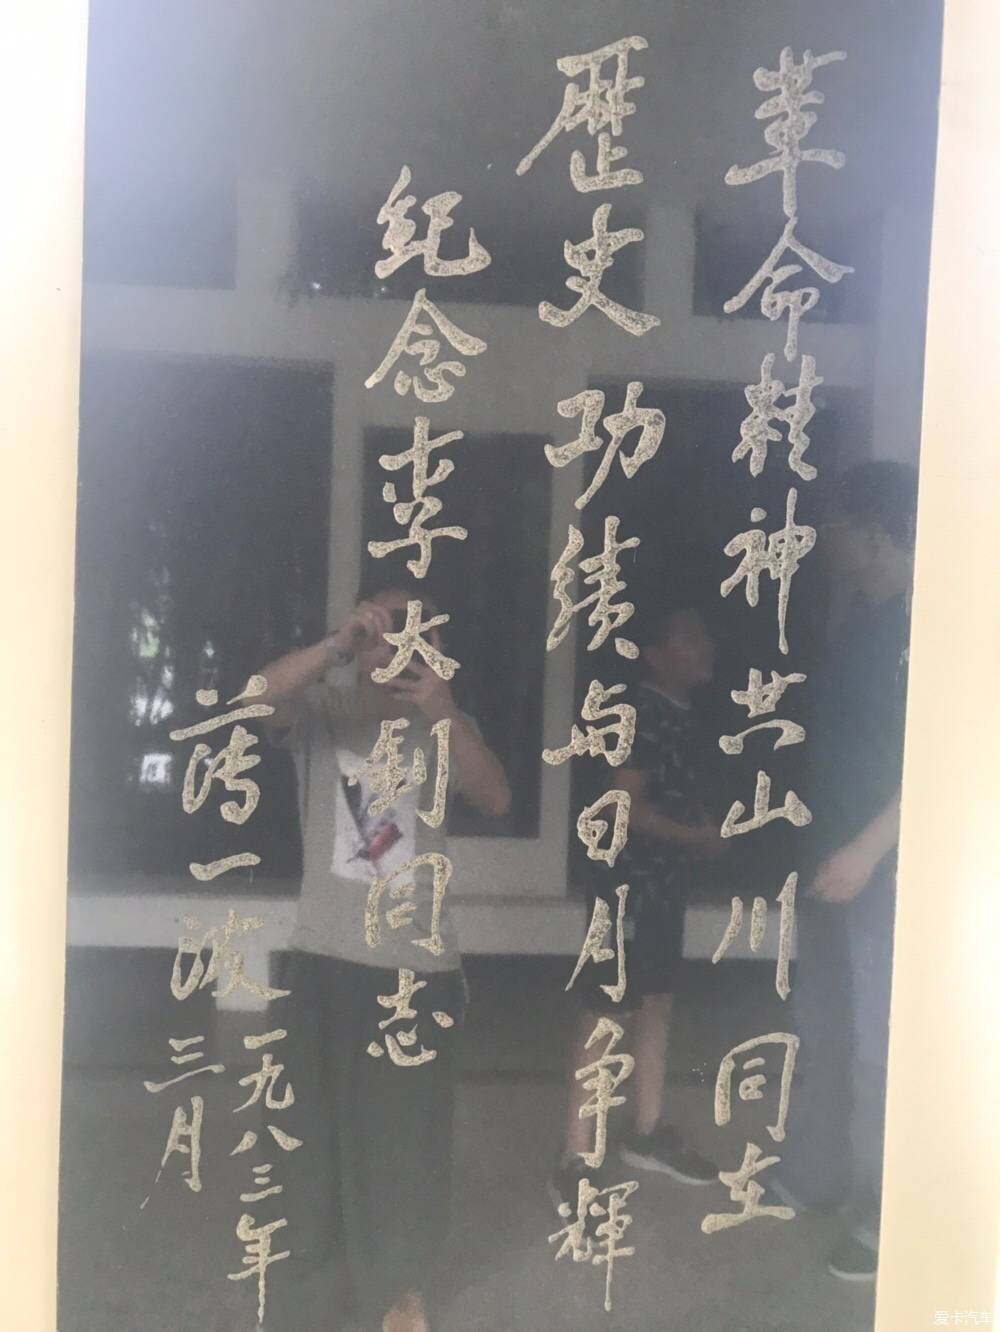 革命精神共山川同在
歷史功绩与日月争辉
纪念李大钊同志
薄一波
一九八三年
三月
爱卡汽车